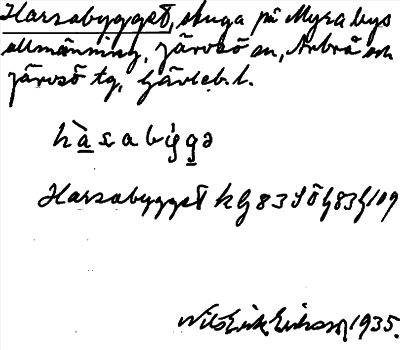 Harsabygget, stuga på Myra bys
allmänning, Järvsö sn, Arbrå och
Järvsö tg, Gävleb. l.
hàsabìggə
Harsabygget k G 83 SÖ G83G109
Nils Erik Eriksson 1935.